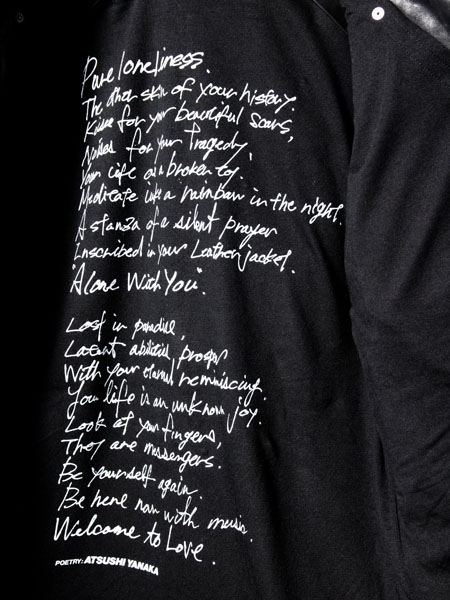 Pure loneliness.
The other skin of your history.
Kisses for your beautiful scars,
Noises for your Tragedy,
Your life as a broken toy.
Medicate like a rainbow in the night.
A stanza of a silent prayer
Inscribed in your Leather jacket.
"Alone With You".
Lost in paradise,
Latent abilities, prosper
With your eternal reminiscing.
Your life is an unknown joy.
Look at your fingers,
They are messengers.
Be yourself again.
Be here now with music.
Welcome to Love.
POETRY: ATSUSHI YANAKA